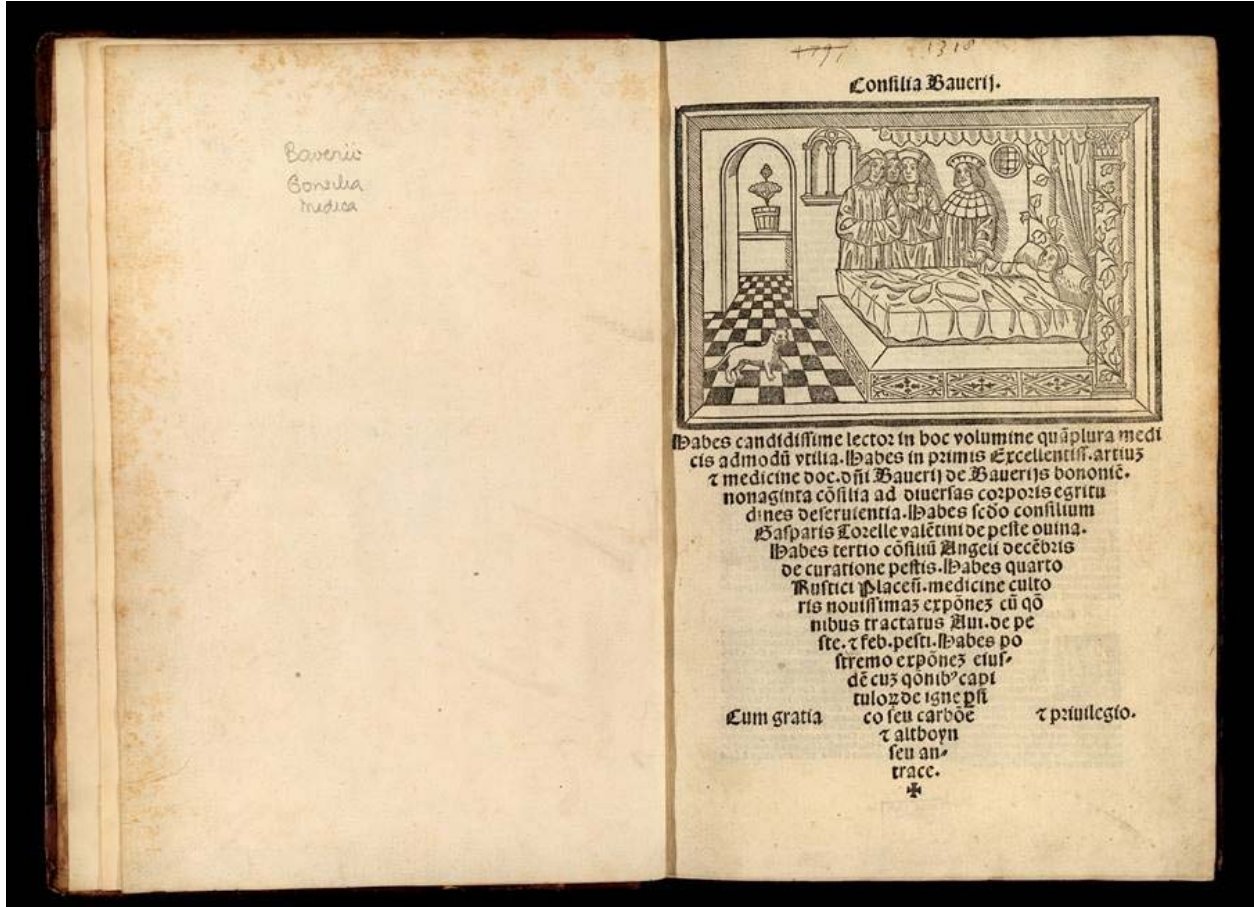 Baverii
Consilia
Medica
1318
Consilia Bauerij.
Habes candidissime lector in hoc volumine quãplura medi
cis admodũ vtilia. Habes in primis Excellentiss. artiuꝫ
⁊ medicine doc. dñi Bauerij de Bauerijs bononiẽ.
nonaginta cõsilia ad diuersas corporis egritu
dines deseruientia. Habes scđo consilium
Gasparis Torelle valẽtini de peste ouina.
Habes tertio cõsiliũ Angeli decẽbris
de curatione pestis. Habes quarto
Rustici Placeñ. medicine culto
ris nouissimaꝫ expõneꝫ cũ qõ
nibus tractatus Aui. de pe
ste. ⁊ feb. pesti. Habes po
stremo expõneꝫ eius-
dẽ cuꝫ qõnibꝰ capi
tuloꝝ de igne ꝑsi
Cum gratia co seu carbõe ⁊ priuilegio.
⁊ althoyn
seu an-
trace.